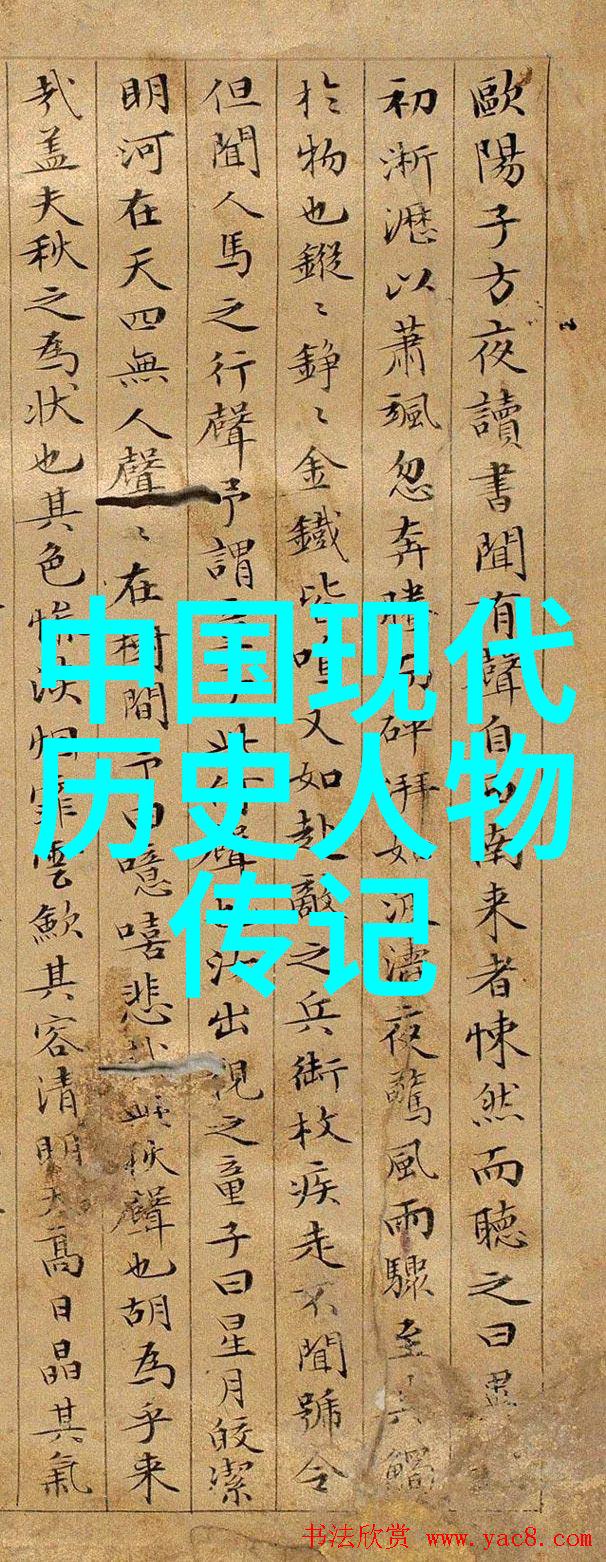 歐陽子方夜讀書聞有聲自南来者悚然而聽之曰異
初淅瀝以蕭颯忽奔騰而砰湃如波濤夜驚風雨驟至其觸
扵物也鏦〻錚〻金鐵皆鳴又如赴敵之兵銜枚疾走不聞號令
但聞人馬之行聲予謂此何聲也汝出視之童子曰星月皎潔
明河在天四無人聲〻在樹間予曰噫嘻悲秋聲也胡為乎来
哉盖夫秋之為狀也其色惨淡烟霏雲歛其容清明天高日晶其氣
中国现代
历史人物
传记
书法欣赏 www.yac8.com